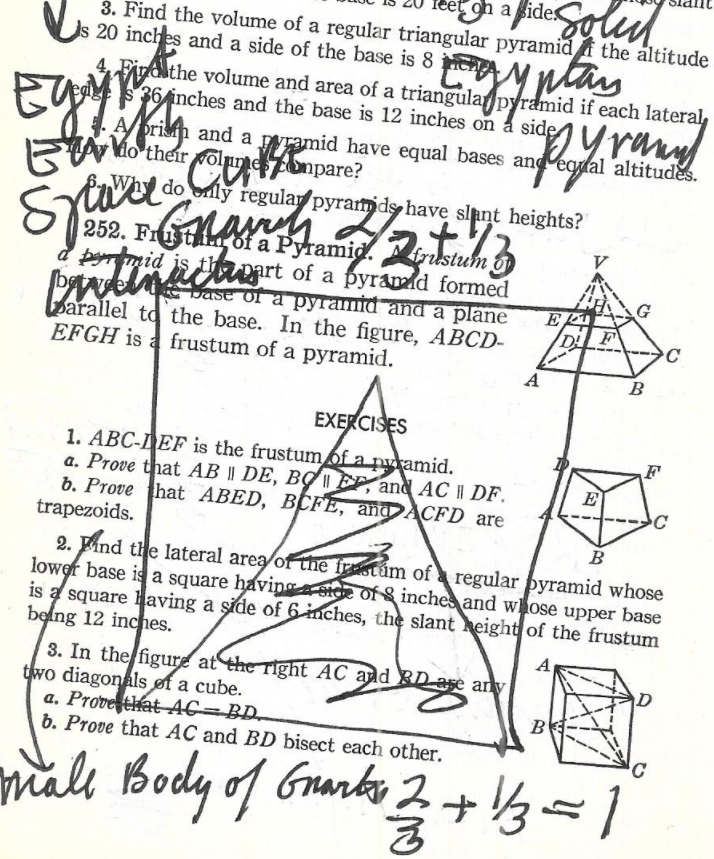 is 20 feet on a side.
Solid
3. Find the volume of a regular triangular pyramid if the altitude
is 20 inches and a side of the base is 8 inches.
Egyptan
4. Find the volume and area of a triangular pyramid if each lateral
edge is 36 inches and the base is 12 inches on a side.
Egypt
pyramid
5. A prism and a pyramid have equal bases and equal altitudes.
How do their volumes compare?
Earth
Cube
6. Why do only regular pyramids have slant heights?
Space
2/3 + 1/3
252. Frustum of a Pyramid. A frustum of
a pyramid is the part of a pyramid formed
between the base of a pyramid and a plane
parallel to the base. In the figure, ABCD-
EFGH is a frustum of a pyramid.
V
H
E
G
D
F
C
A
B
EXERCISES
1. ABC-DEF is the frustum of a pyramid.
a. Prove that AB ∥ DE, BC ∥ EF, and AC ∥ DF.
b. Prove that ABED, BCFE, and ACFD are
trapezoids.
D
F
E
A
C
B
2. Find the lateral area of the frustum of a regular pyramid whose
lower base is a square having a side of 8 inches and whose upper base
is a square having a side of 6 inches, the slant height of the frustum
being 12 inches.
3. In the figure at the right AC and BD are any
two diagonals of a cube.
a. Prove that AC = BD.
b. Prove that AC and BD bisect each other.
A
D
B
C
Male Body of 2/3 + 1/3 = 1